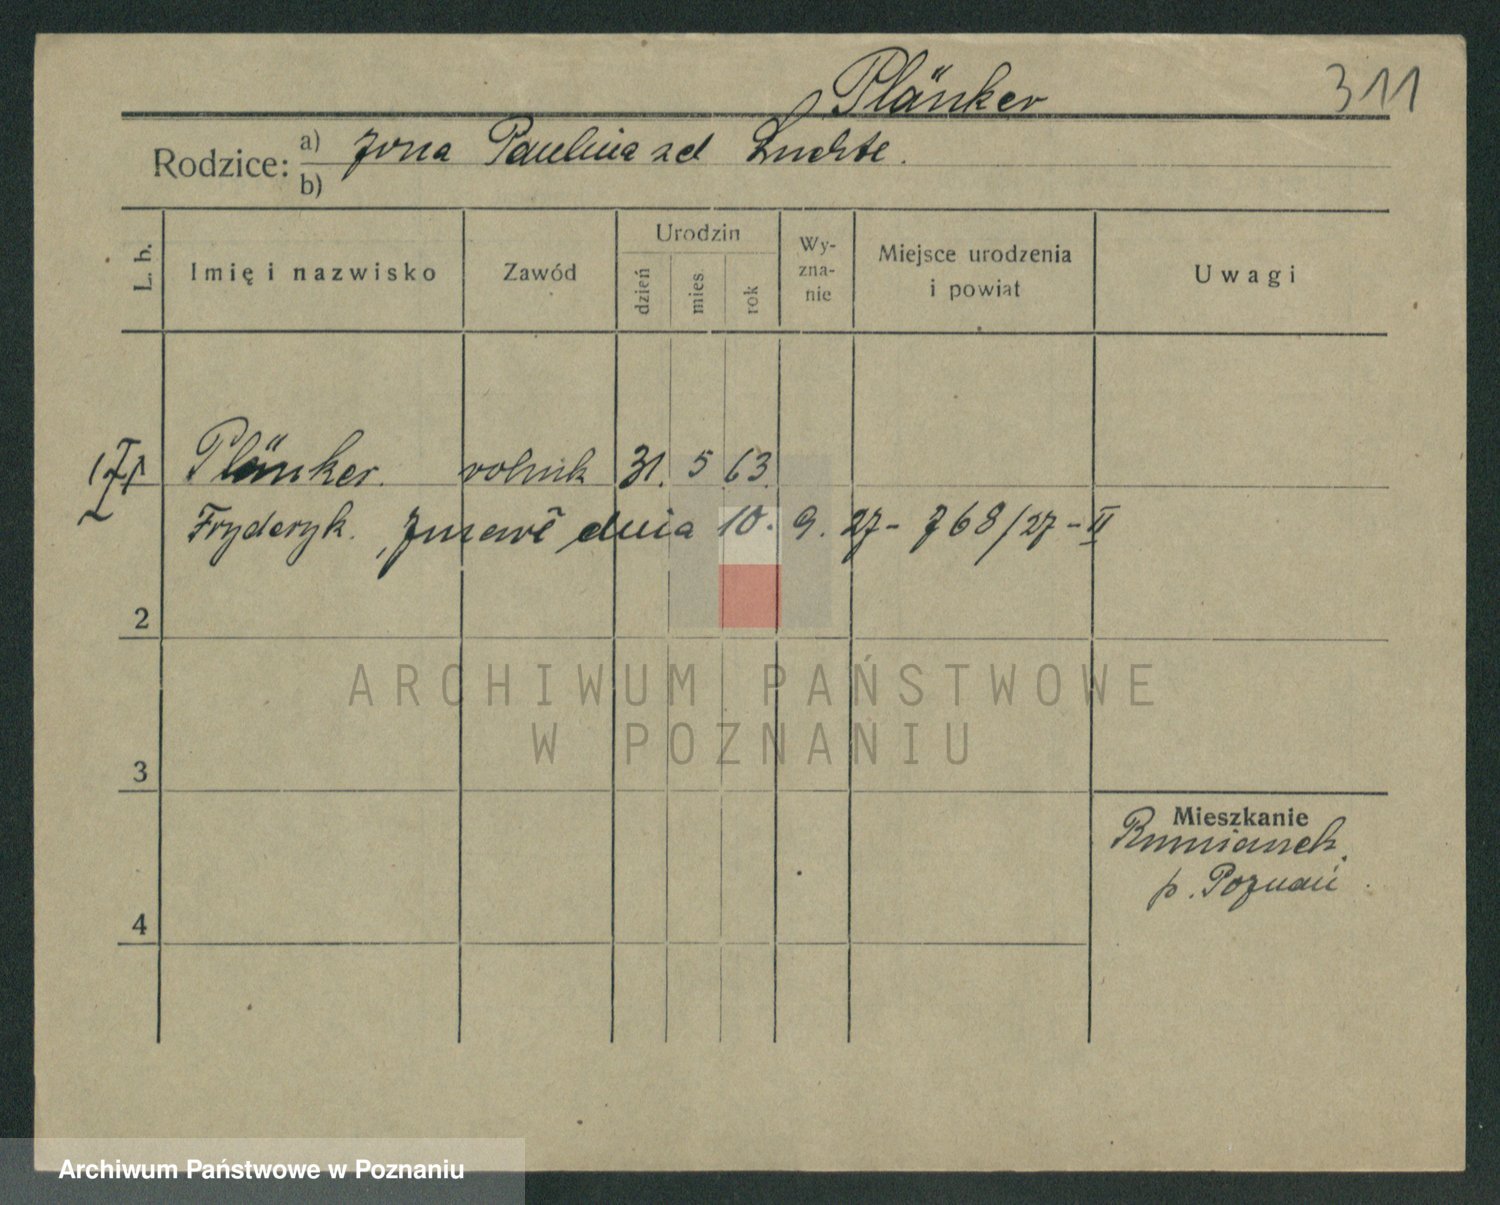 Plänker
311
Rodzice: a) żona Paulina zd Luchte.
b)
L. b.
Imię i nazwisko
Zawód
Urodzin
dzień
mies.
rok
Wy-
zna-
nie
Miejsce urodzenia
i powiat
Uwagi
1 Plänker. rolnik 31. 5 63.
Fryderyk. zmarł dnia 10. 9. 27 - 768/27 - II
2
3
4
Mieszkanie
Rumianek.
p. Poznań.
ARCHIWUM PAŃSTWOWE
W POZNANIU
Archiwum Państwowe w Poznaniu